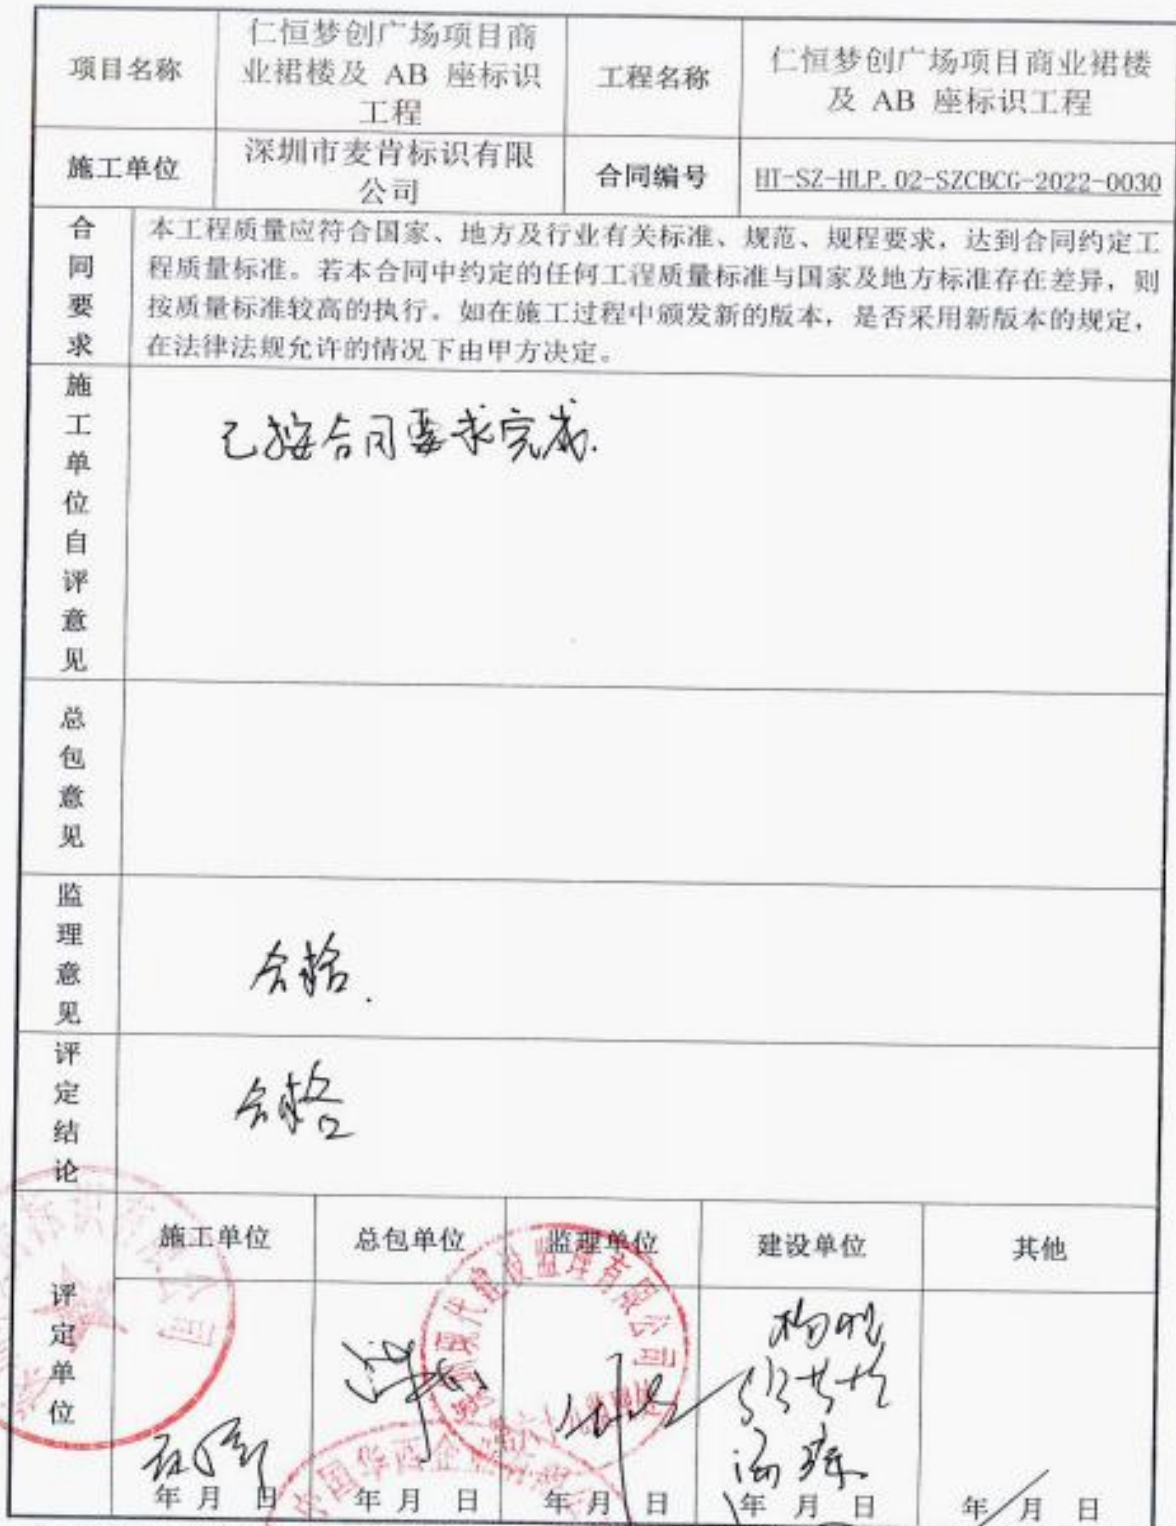 项目名称
仁恒梦创广场项目商
业裙楼及 AB 座标识
工程
工程名称
仁恒梦创广场项目商业裙楼
及 AB 座标识工程
施工单位
深圳市麦肯标识有限
公司
合同编号
HT-SZ-HLP.02-SZCBCG-2022-0030
合同要求
本工程质量应符合国家、地方及行业有关标准、规范、规程要求，达到合同约定工
程质量标准。若本合同中约定的任何工程质量标准与国家及地方标准存在差异，则
按质量标准较高的执行。如在施工过程中颁发新的版本，是否采用新版本的规定，
在法律法规允许的情况下由甲方决定。
施工单位自评意见
已按合同要求完成.
总包意见
监理意见
合格.
评定结论
合格
评定单位
施工单位
总包单位
监理单位
建设单位
其他
现代建设监理有限公司
中国华西企业有限公
年 月 日
年 月 日
年 月 日
年 月 日
年 月 日